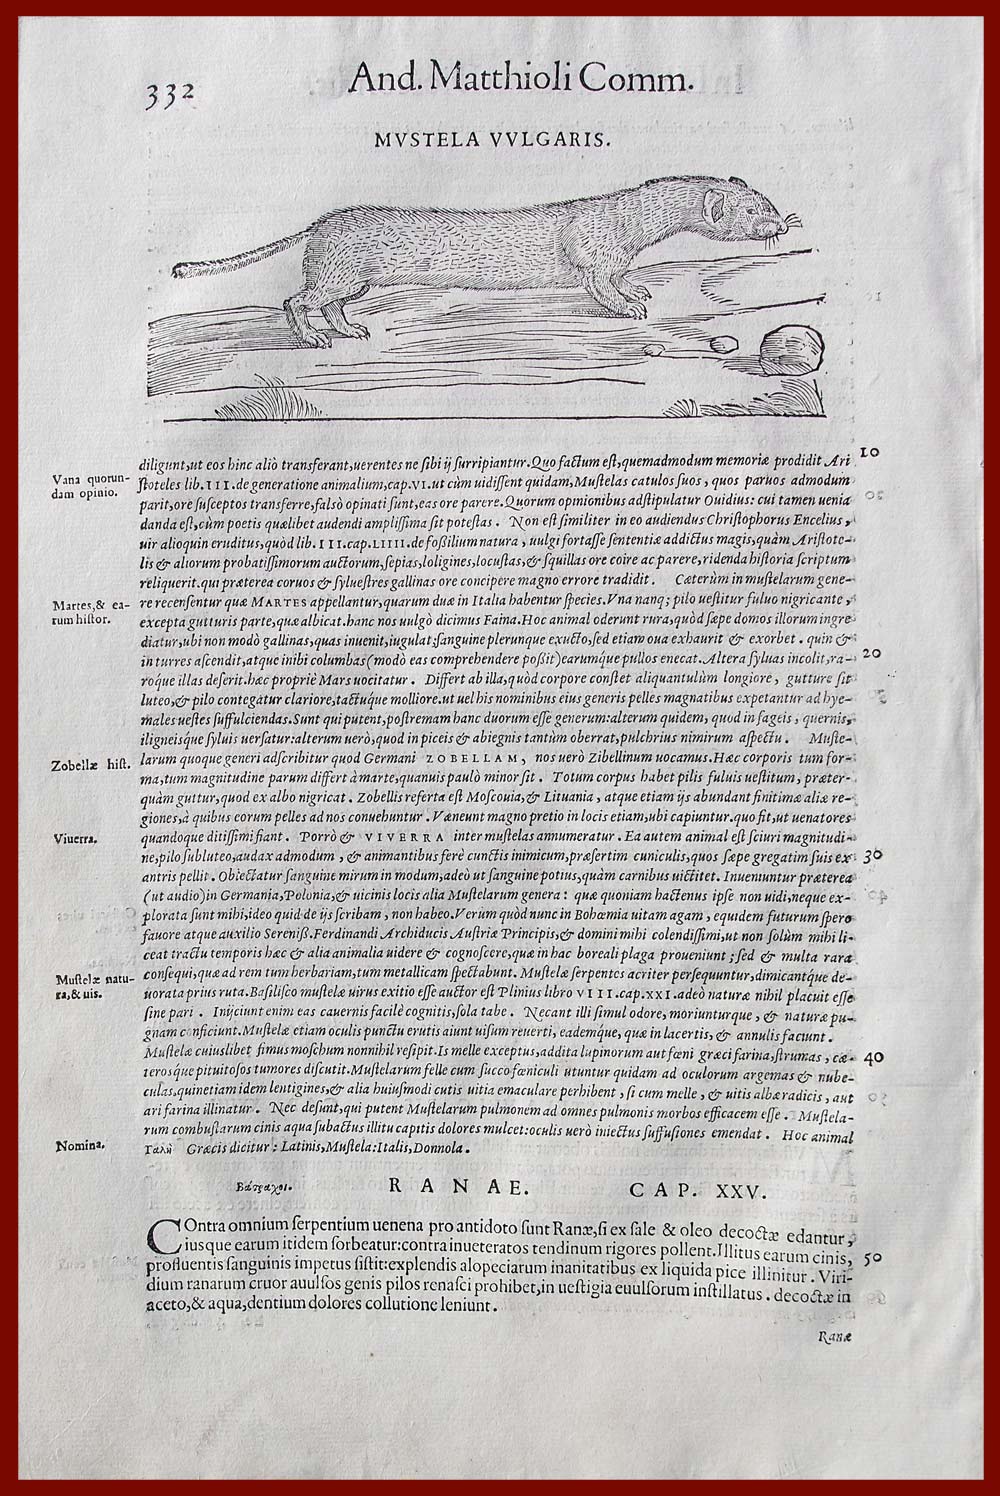 332
And. Matthioli Comm.
MVSTELA VVLGARIS.
diligunt,ut eos hinc aliò transferant,uerentes ne sibi ij surripiantur. Quo factum est,quemadmodum memoriæ prodidit Ari 10
Vana quorun-
dam opinio.
stoteles lib.III.de generatione animalium,cap.VI.ut cùm uidissent quidam,Mustelas catulos suos, quos paruos admodum
parit,ore susceptos transferre,falsò opinati sunt,eas ore parere.Quorum opinionibus adstipulatur Ouidius: cui tamen uenia
danda est,cùm poetis quælibet audendi amplissima sit potestas. Non est similiter in eo audiendus Christophorus Encelius,
uir alioquin eruditus,quòd lib.III.cap.LIIII.de fossilium natura, uulgi fortasse sententiæ addictus magis,quàm Aristote-
lis & aliorum probatissimorum auctorum,sepias,loligines,locustas,& squillas ore coire ac parere,ridenda historia scriptum
reliquerit.qui præterea coruos & syluestres gallinas ore concipere magno errore tradidit. Cæterùm in mustelarum gene-
Martes,& ea-
rum histor.
re recensentur quæ MARTES appellantur,quarum duæ in Italia habentur species.Vna nanq; pilo uestitur fuluo nigricante,
excepta gutturis parte,quæ albicat.hanc nos uulgò dicimus Faina.Hoc animal oderunt rura,quòd sæpe domos illorum ingre
diatur,ubi non modò gallinas,quas inuenit,iugulat,sanguine plerunque exucto,sed etiam oua exhaurit & exorbet. quin &
in turres ascendit,atque inibi columbas(modò eas comprehendere possit)earumque pullos enecat.Altera syluas incolit,ra- 20
roque illas deserit.hæc propriè Mars uocitatur. Differt ab illa,quòd corpore constet aliquantulùm longiore, gutture sit
luteo,& pilo contegatur clariore,tactuque molliore.ut uel his nominibus eius generis pelles magnatibus expetantur ad hye-
males uestes suffulciendas.Sunt qui putent,postremam hanc duorum esse generum:alterum quidem, quod in fageis, quernis,
iligneisque syluis uersatur:alterum uerò,quod in piceis & abiegnis tantùm oberrat,pulchrius nimirum aspectu. Muste-
Zobellæ hist.
larum quoque generi adscribitur quod Germani ZOBELLAM, nos uerò Zibellinum uocamus.Hæc corporis tum for-
ma,tum magnitudine parum differt à marte,quanuis paulò minor sit. Totum corpus habet pilis fuluis uestitum, præter-
quàm guttur,quod ex albo nigricat. Zobellis referta est Moscouia,& Lituania, atque etiam ijs abundant finitimæ aliæ re-
giones,à quibus eorum pelles ad nos conuehuntur. Væneunt magno pretio in locis etiam,ubi capiuntur.quo fit,ut uenatores
Viuerra.
quandoque ditissimi fiant. Porrò & VIVERRA inter mustelas annumeratur. Ea autem animal est sciuri magnitudi-
ne,pilo subluteo,audax admodum, & animantibus ferè cunctis inimicum,præsertim cuniculis,quos sæpe gregatim suis ex 30
antris pellit. Obiectatur sanguine mirum in modum,adeò ut sanguine potius,quàm carnibus uictitet. Inueniuntur præterea
(ut audio)in Germania,Polonia,& uicinis locis alia Mustelarum genera: quæ quoniam hactenus ipse non uidi,neque ex-
plorata sunt mihi,ideo quid de ijs scribam, non habeo.Verùm quòd nunc in Bohœmia uitam agam, equidem futurum spero
fauore atque auxilio Sereniss.Ferdinandi Archiducis Austriæ Principis,& domini mihi colendissimi,ut non solùm mihi li-
ceat tractu temporis hæc & alia animalia uidere & cognoscere,quæ in hac boreali plaga proueniunt;sed & multa rara
Mustelæ natu-
ra,& uis.
consequi,quæ ad rem tum herbariam,tum metallicam spectabunt. Mustelæ serpentes acriter persequuntur,dimicantque de-
uorata prius ruta.Basilisco mustelæ uirus exitio esse auctor est Plinius libro VIII.cap.XXI.adeò naturæ nihil placuit esse
sine pari. Inijciunt enim eas cauernis facilè cognitis,sola tabe. Necant illi simul odore, moriunturque, & naturæ pu-
gnam conficiunt.Mustelæ etiam oculis punctu erutis aiunt uisum reuerti, eademque, quæ in lacertis, & annulis faciunt.
Mustelæ cuiuslibet fimus moschum nonnihil resipit.Is melle exceptus,addita lupinorum aut fœni græci farina,strumas, cæ- 40
terosque pituitosos tumores discutit.Mustelarum felle cum succo fœniculi utuntur quidam ad oculorum argemas & nube-
culas,quinetiam idem lentigines,& alia huiusmodi cutis uitia emaculare perhibent, si cum melle, & uitis albæ radicis, aut
ari farina illinatur. Nec desunt,qui putent Mustelarum pulmonem ad omnes pulmonis morbos efficacem esse. Mustela-
rum combustarum cinis aqua subactus illitu capitis dolores mulcet:oculis uerò iniectus suffusiones emendat. Hoc animal
Nomina.
Γαλῆ Græcis dicitur: Latinis,Mustela:Italis,Donnola.
Βάτραχοι. RANAE. CAP. XXV.
COntra omnium serpentium uenena pro antidoto sunt Ranæ,si ex sale & oleo decoctæ edantur,
iusque earum itidem sorbeatur:contra inueteratos tendinum rigores pollent.Illitus earum cinis, 50
profluentis sanguinis impetus sistit:explendis alopeciarum inanitatibus ex liquida pice illinitur. Viri-
dium ranarum cruor auulsos genis pilos renasci prohibet,in uestigia euulsorum instillatus. decoctæ in
aceto,& aqua,dentium dolores collutione leniunt.
Ranæ